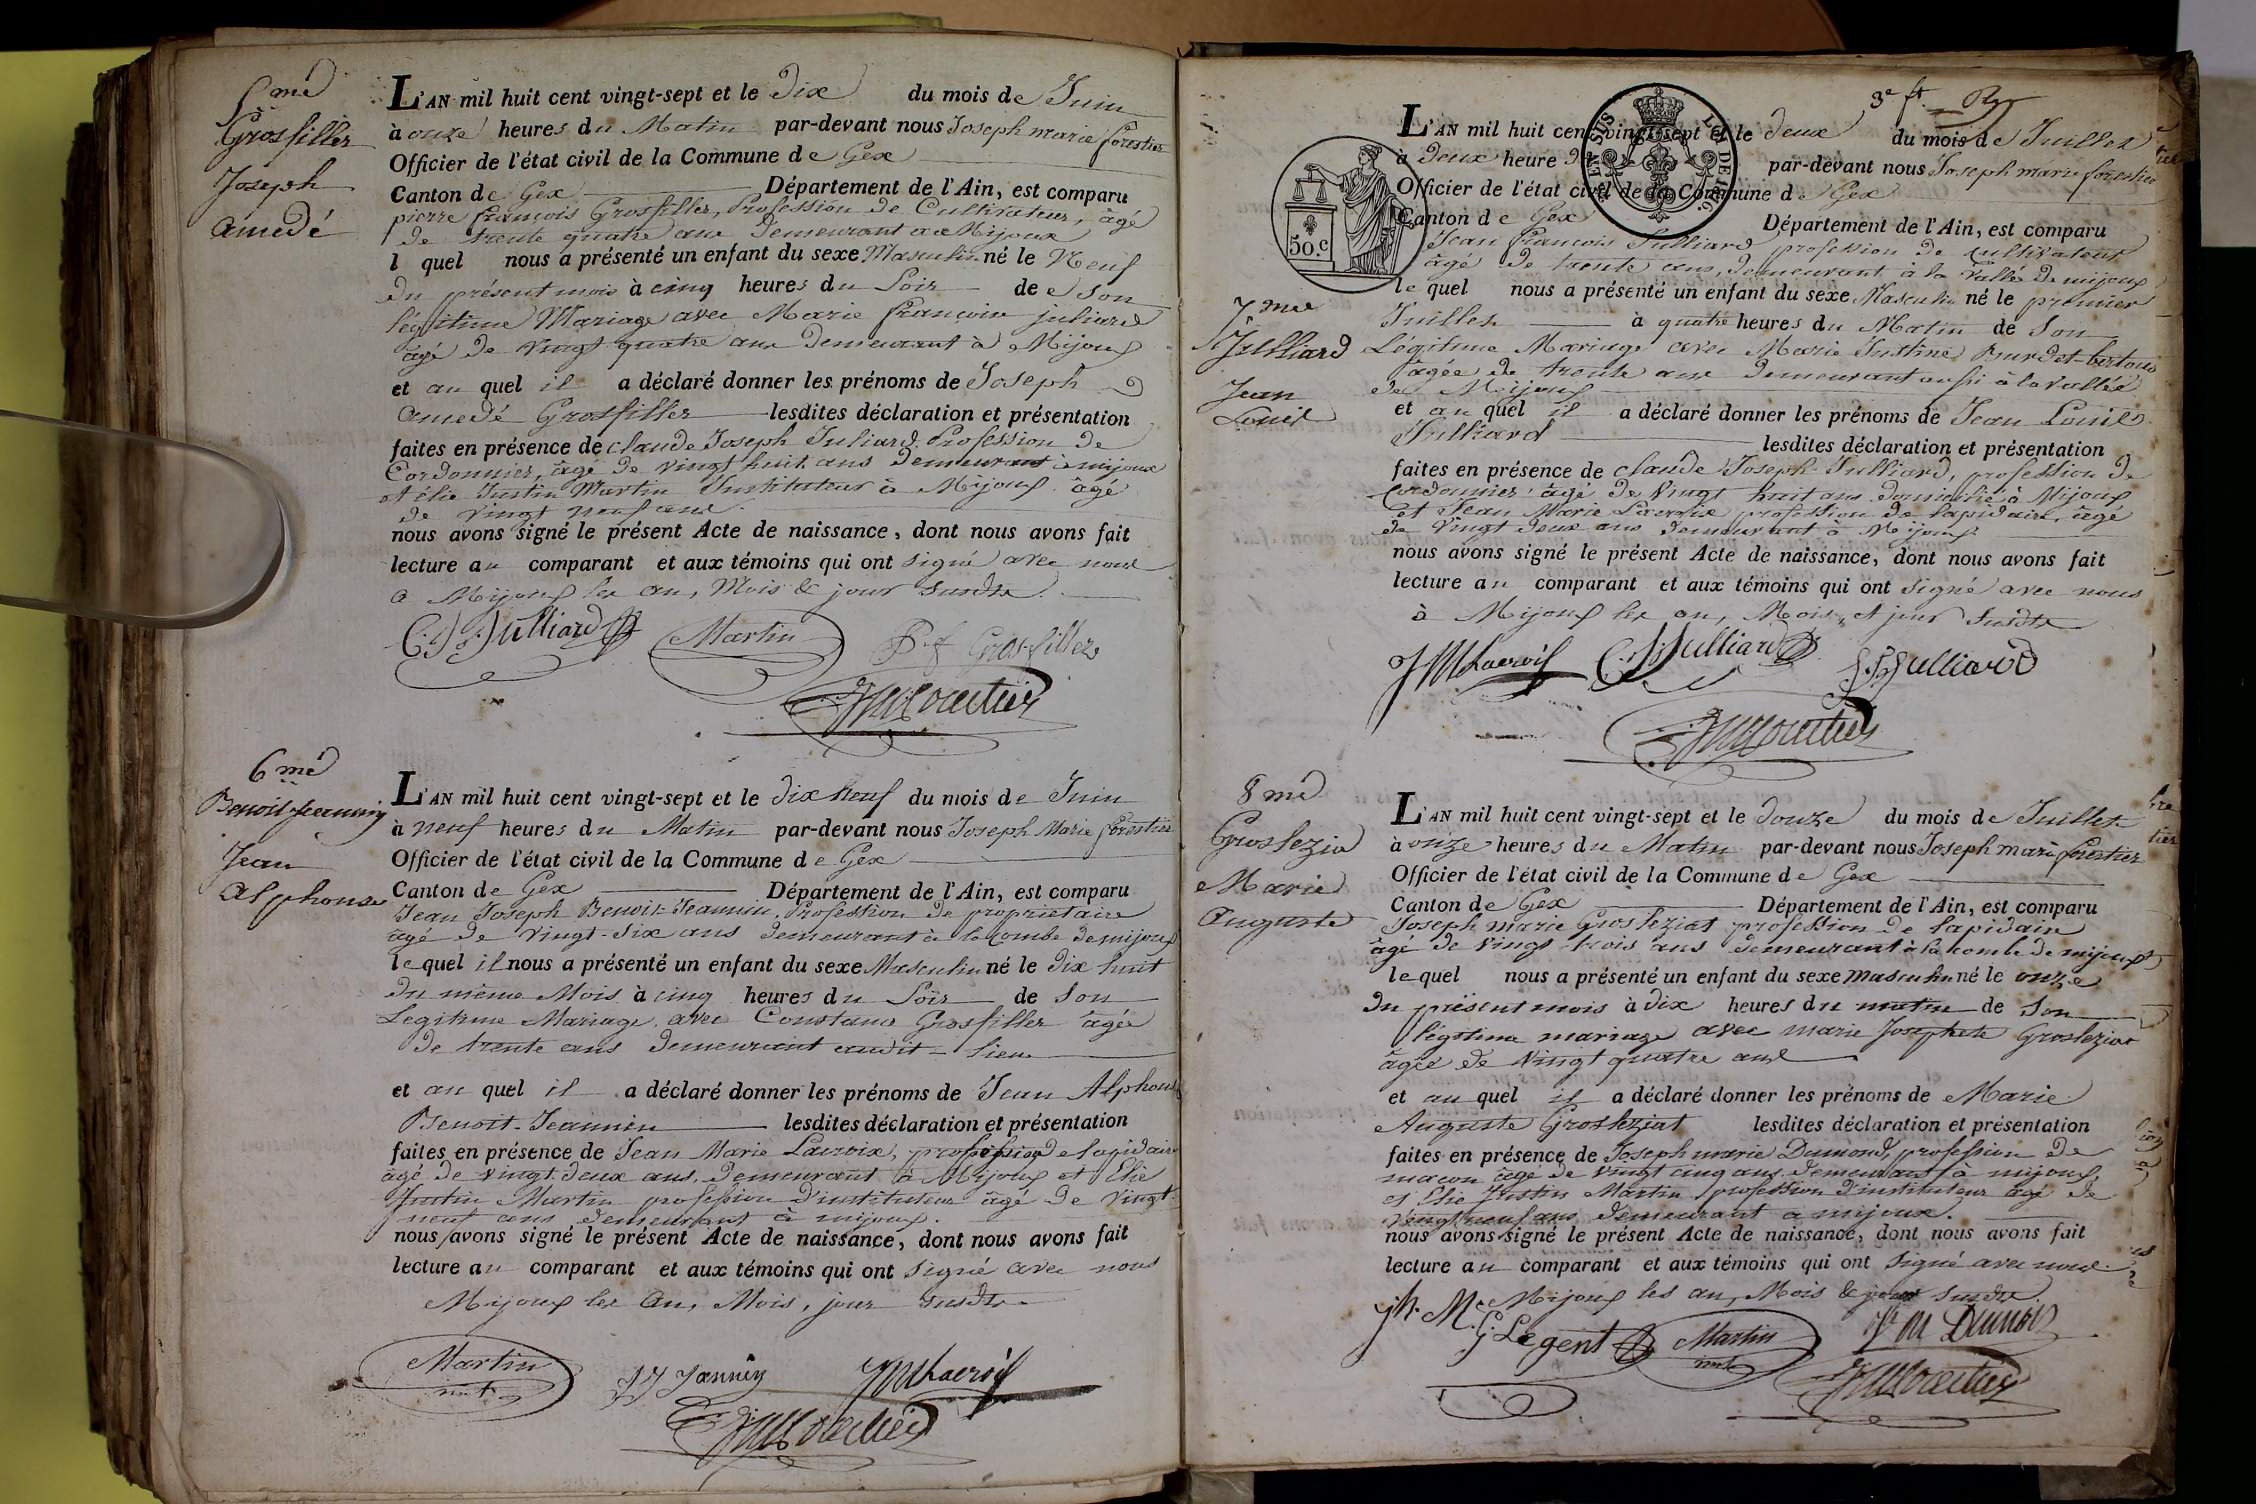 5.me
Grosfiller
Joseph
amedé
L'AN mil huit cent vingt-sept et le dix du mois de Juin
à onze heures du Matin par-devant nous Joseph marie forestier
Officier de l'état civil de la Commune de Gex
Canton de Gex Département de l'Ain, est comparu
pierre francois Grosfiller, Profession de Cultivateur, âgé
de trente quatre ans demeurant a Mijoux
l quel nous a présenté un enfant du sexe Masculin né le Neuf
du présent mois à cinq heures du Soir de Son
légitime Mariage avec Marie francoise juliard
âgé de vingt quatre ans demeurant à Mijoux
et au quel il a déclaré donner les prénoms de Joseph
amedé Grosfiller lesdites déclaration et présentation
faites en présence de claude Joseph Juliard, Profession de
Cordonnier, âgé de vingt huit ans demeurant à mijoux
et élie Justin Martin Instituteur à Mijoux âgé
de vingt neuf ans.
nous avons signé le présent Acte de naissance, dont nous avons fait
lecture au comparant et aux témoins qui ont signé avec nous
a Mijoux les an, Mois & jour Susdits.
C. J. Julliard Martin P. f Grosfiller
JM forestier
6.me
Benoit-jeannin
Jean
alphonse
L'AN mil huit cent vingt-sept et le dix Neuf du mois de Juin
à neuf heures du Matin par-devant nous Joseph Marie forestier
Officier de l'état civil de la Commune de Gex
Canton de Gex Département de l'Ain, est comparu
Jean Joseph Benoit-Jeannin, Profession de propriétaire
âgé de vingt-six ans demeurant à la Combe de mijoux
le quel il nous a présenté un enfant du sexe Masculin né le dix huit
du même Mois à cinq heures du Soir de Son
Légitime Mariage avec Constance Grosfiller âgée
de trente ans demeurant audit-lieu
et au quel il a déclaré donner les prénoms de Jean Alphonse
Benoit-Jeannin lesdites déclaration et présentation
faites en présence de Jean Marie Lacroix, profession de lapidaire
âgé de vingt deux ans, demeurant à Mijoux et Elie
Justin Martin profession d'instituteur âgé de vingt
neuf ans demeurant à mijoux.
nous avons signé le présent Acte de naissance, dont nous avons fait
lecture au comparant et aux témoins qui ont signé avec nous
Mijoux les an, Mois, jour susdits.
Martin JJ Jannin JM Lacroix
JM forestier
3e ft.
50.c
LOI DE
7.me
Julliard
Jean
Louis
L'AN mil huit cent vingt-sept et le deux du mois de Juillet
à deux heure du par-devant nous Joseph marie forestier
Officier de l'état civil de la Commune de Gex
Canton de Gex Département de l'Ain, est comparu
Jean francois Julliard profession de cultivateur
âgé de trente ans, demeurant à la vallé de mijoux
le quel nous a présenté un enfant du sexe Masculin né le premier
Juillet à quatre heures du Matin de Son
Légitime Mariage avec Marie Justine
âgée de trente ans demeurant aussi à la vallée
de Mijoux
et au quel il a déclaré donner les prénoms de Jean Louis
Julliard lesdites déclaration et présentation
faites en présence de claude Joseph Julliard, profession de
cordonnier âgé de vingt huit ans domicilié à Mijoux
et Jean Marie Lacroix profession de lapidaire, âgé
de vingt deux ans demeurant à Mijoux
nous avons signé le présent Acte de naissance, dont nous avons fait
lecture au comparant et aux témoins qui ont signé avec nous
à Mijoux les an, Mois, et jour susdits
JM Lacroix C. J. Julliard J. f Julliard
JM forestier
8.me
Groslezia
Marie
Auguste
L'AN mil huit cent vingt-sept et le douze du mois de Juillet
à onze heures du Matin par-devant nous Joseph marie forestier
Officier de l'état civil de la Commune de Gex
Canton de Gex Département de l'Ain, est comparu
Joseph marie Grosleziat profession de lapidaire
âgé de vingt trois ans demeurant à la combe de mijoux
le quel nous a présenté un enfant du sexe masculin né le onze
du présent mois à dix heures du matin de Son
légitime mariage avec marie Josephete Grosleziat
âgée de vingt quatre ans
et au quel il a déclaré donner les prénoms de Marie
Auguste Grosleziat lesdites déclaration et présentation
faites en présence de Joseph marie Dumond, profession de
macon âgé de vingt cinq ans demeurant à mijoux,
et Elie Justin Martin profession d'instituteur âgé de
vingt neuf ans demeurant a mijoux.
nous avons signé le présent Acte de naissance, dont nous avons fait
lecture au comparant et aux témoins qui ont signé avec nous
Mijoux les an, Mois & jour Susdits
jh. M. G. Legent Martin
JM forestier